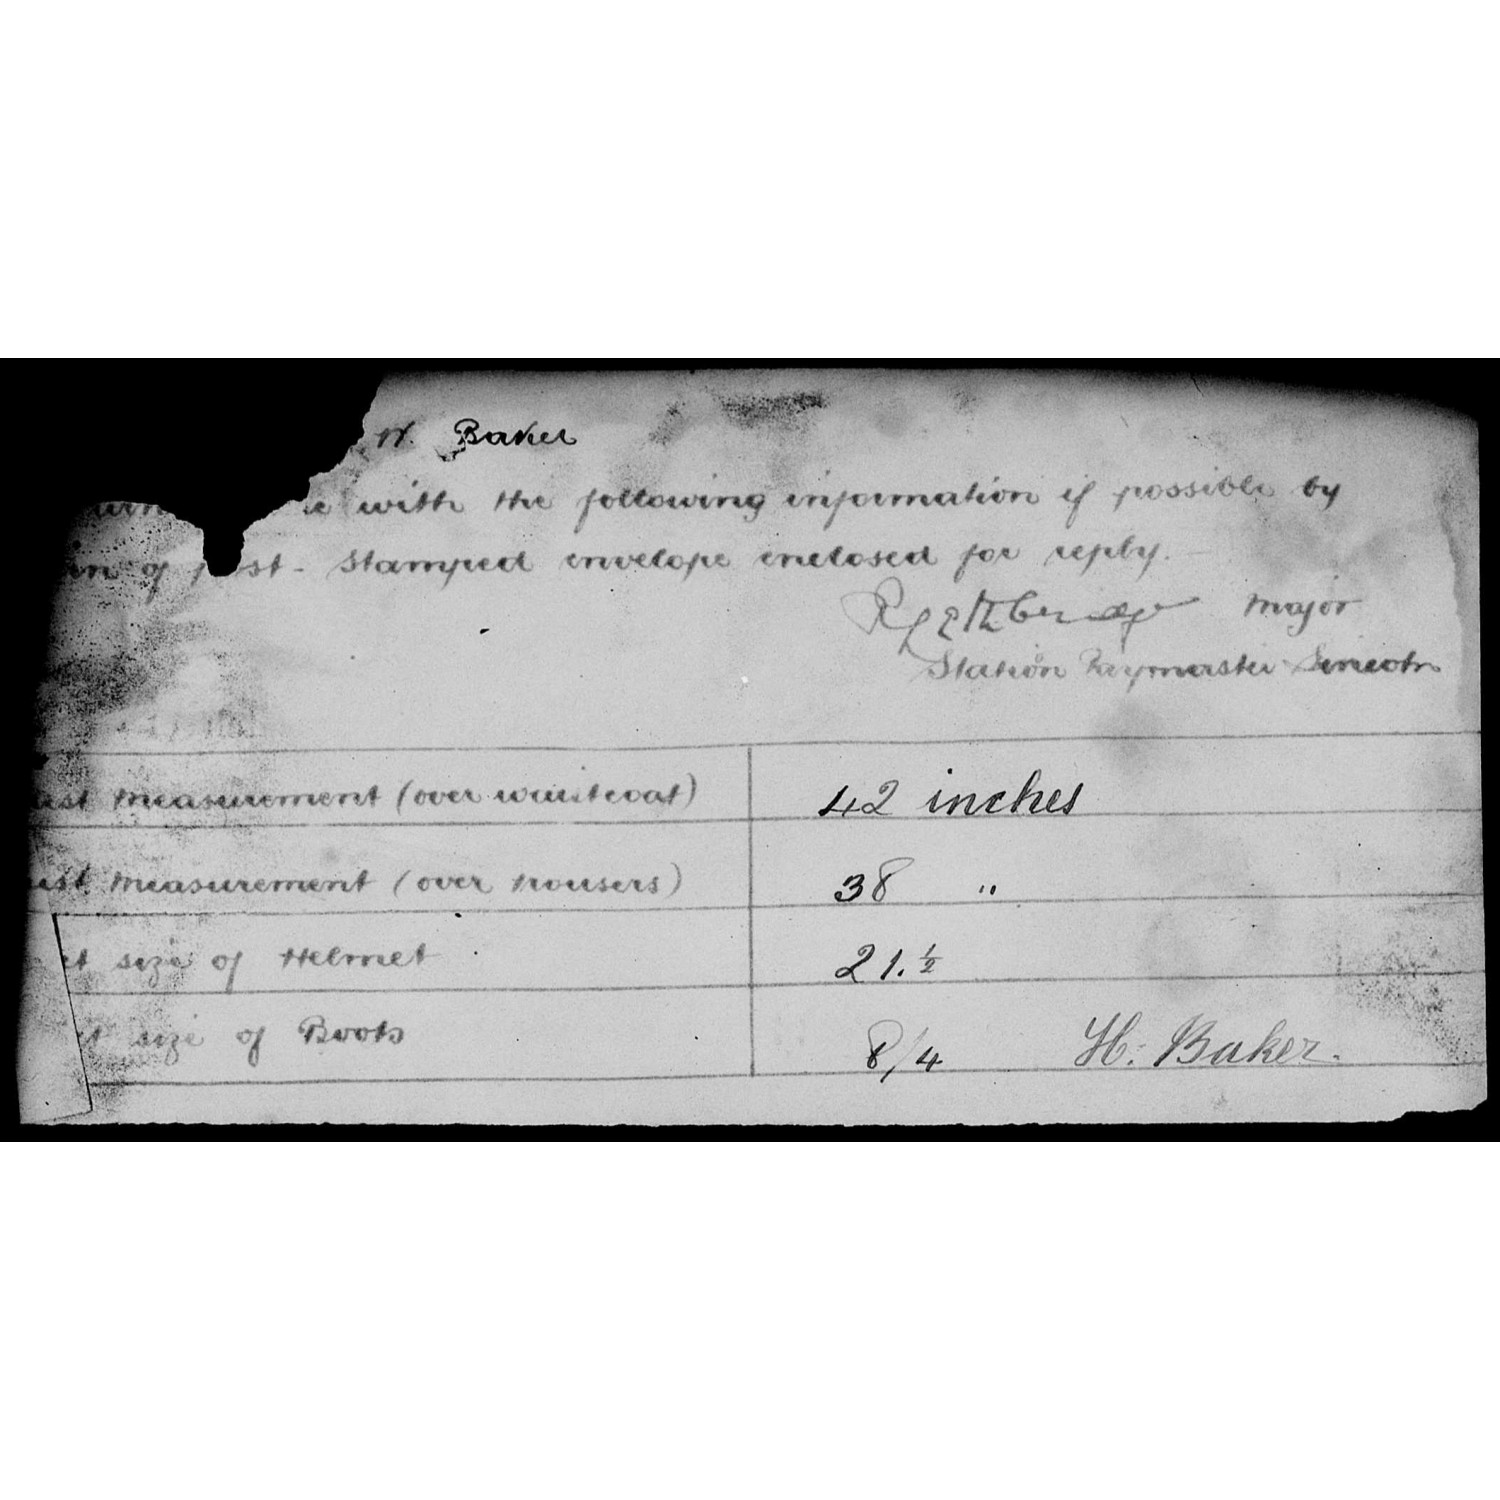 W. Baker
with the following information if possible by
of post - Stamped envelope enclosed for reply.
Major
Station Paymaster Lincoln
measurement (over waistcoat) 42 inches
measurement (over trousers) 38 "
size of Helmet 21.½
size of Boots 8/4 H. Baker.